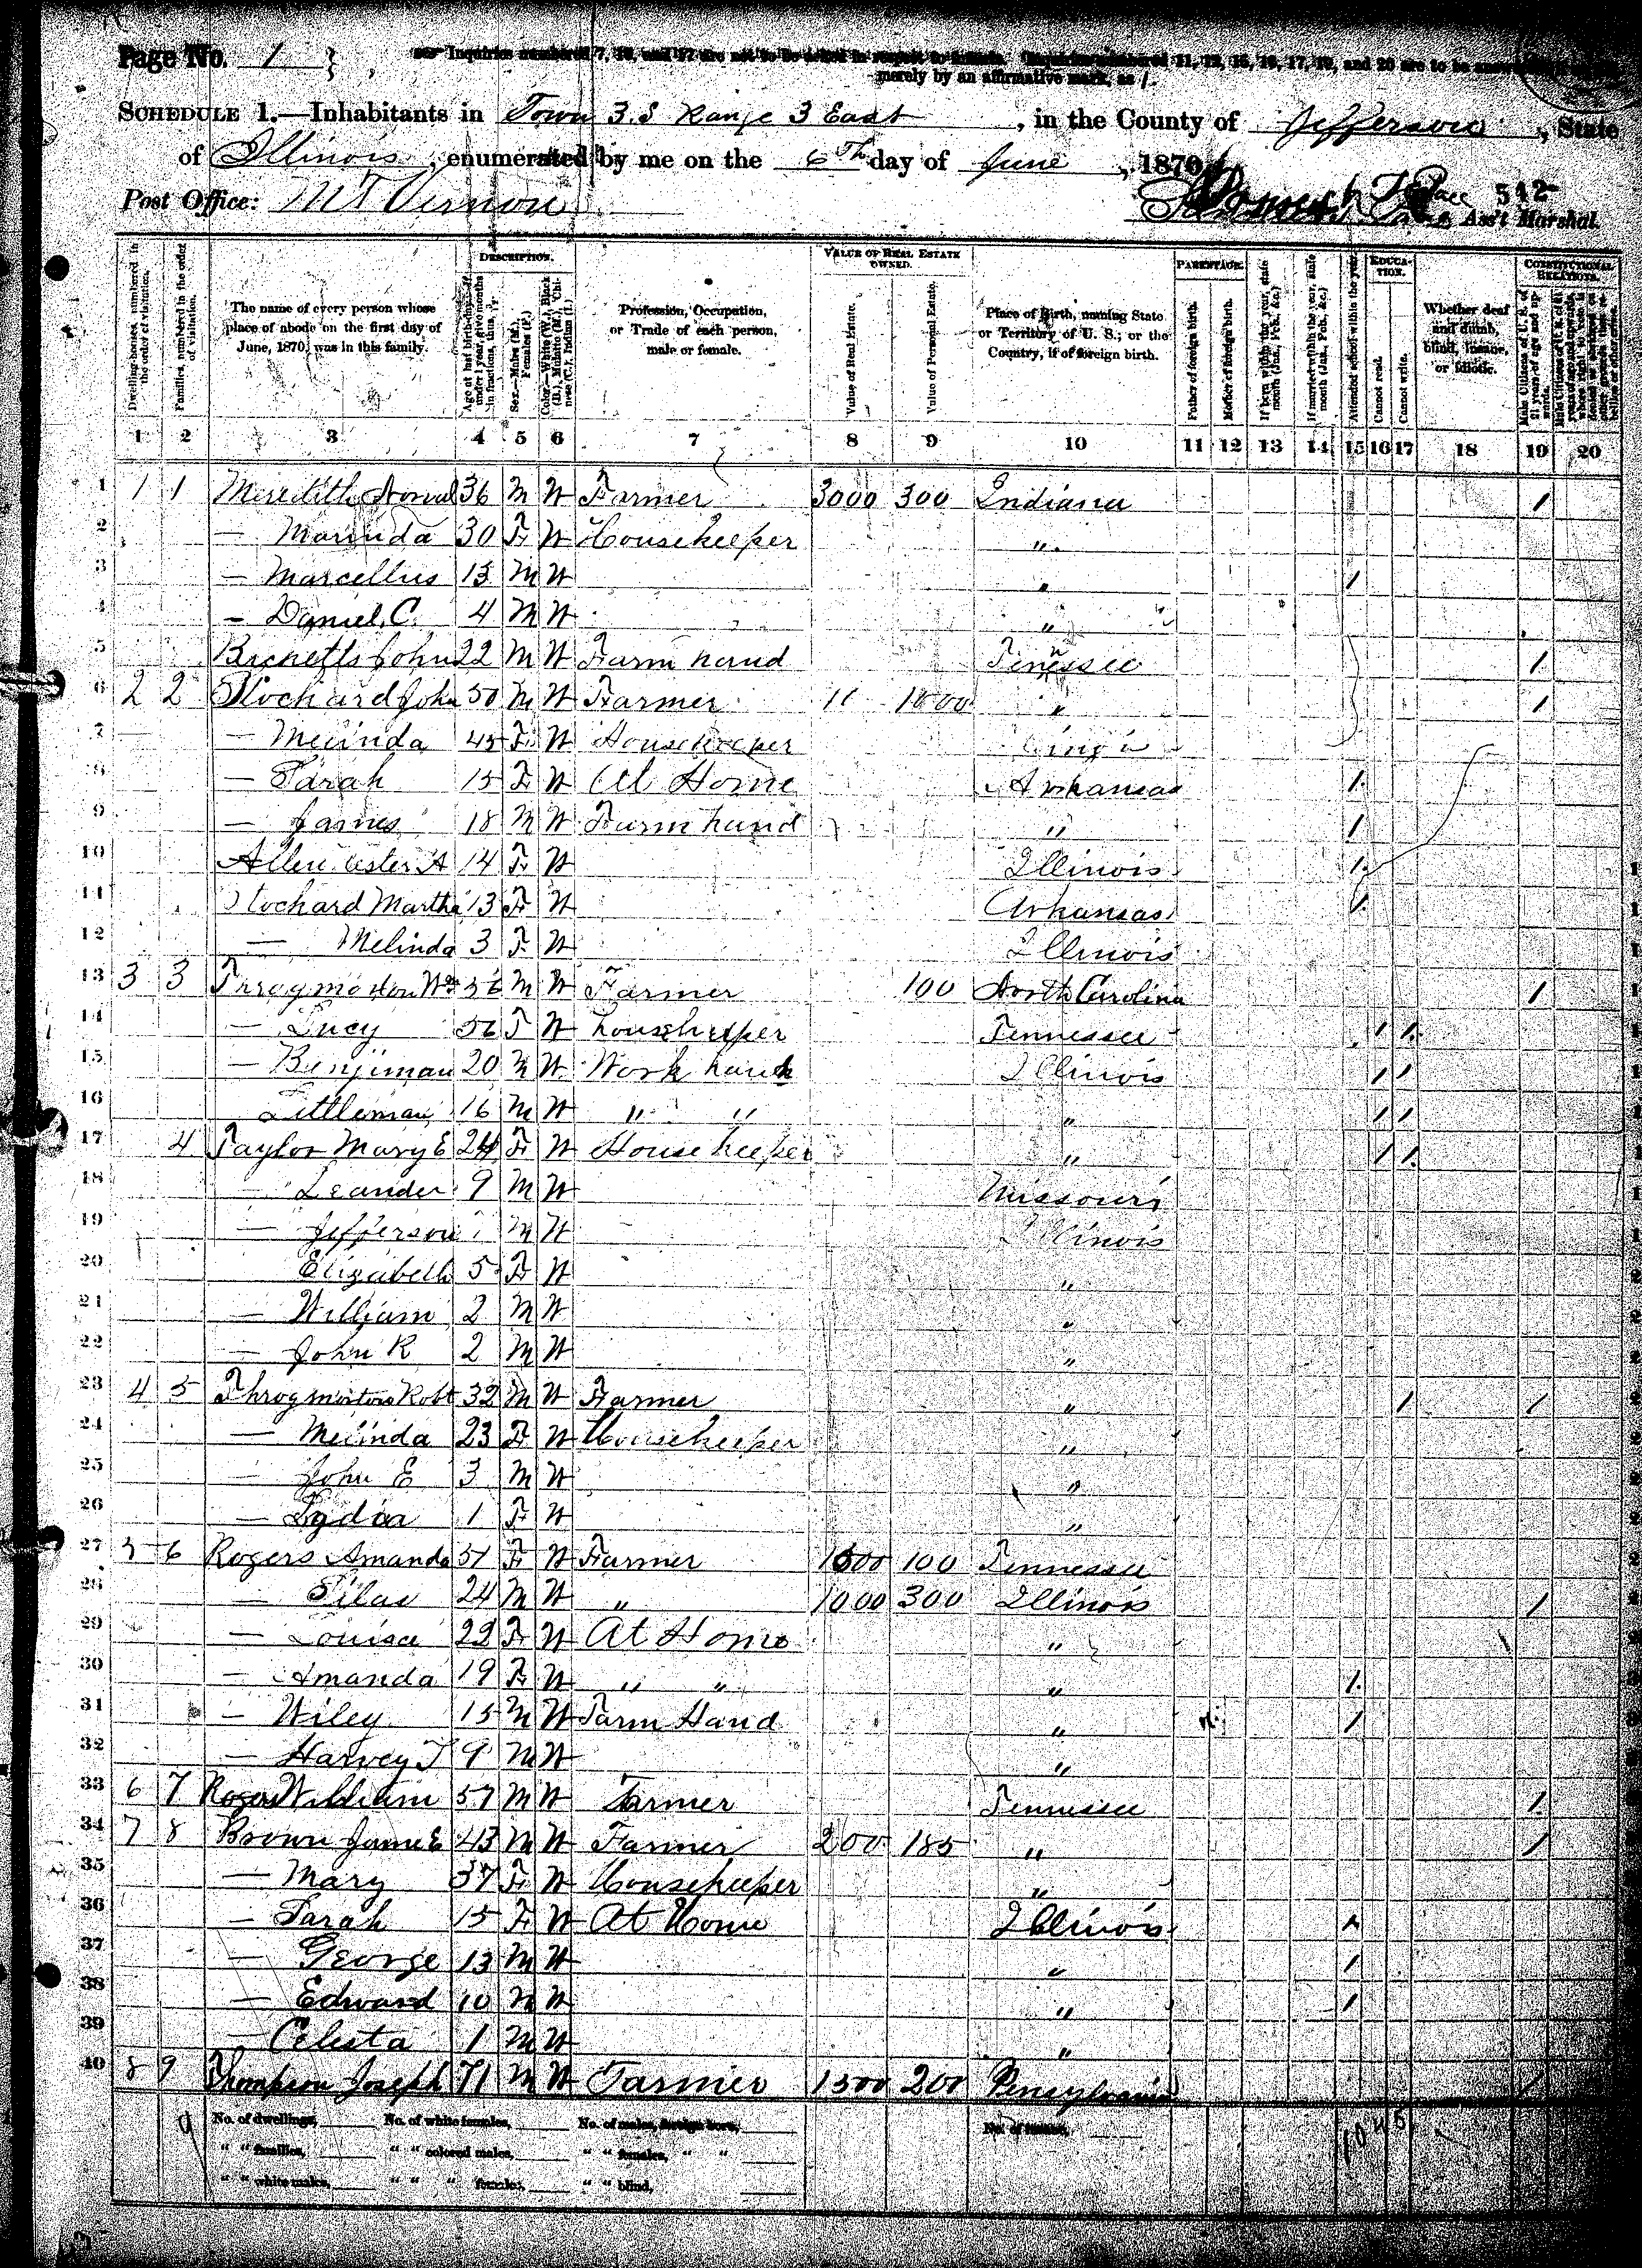 Page No. 1
Inquiries numbered 7, 16, and 17 are not to be asked in respect to infants. Inquiries numbered 11, 12, 15, 16, 17, 19, and 20 are to be
merely by an affirmative mark, as /.
SCHEDULE 1.—Inhabitants in Town 3.S Range 3 East, in the County of Jefferson, State
of Illinois, enumerated by me on the 6th day of June, 1870
Post Office: Mt Vernon
542
Ass't Marshal.
Dwelling-houses, numbered in the order of visitation.
Families, numbered in the order of visitation.
The name of every person whose place of abode on the first day of June, 1870, was in this family.
DESCRIPTION.
Age at last birth-day. If under 1 year, give months in fractions, thus
Sex.—Males (M.), Females (F.)
Color.—White (W.), Black (B.), Mulatto (M.), Chinese (C.), Indian (I.)
Profession, Occupation, or Trade of each person, male or female.
VALUE OF REAL ESTATE OWNED.
Value of Real Estate.
Value of Personal Estate.
Place of Birth, naming State or Territory of U. S.; or the Country, if of foreign birth.
PARENTAGE.
Father of foreign birth.
Mother of foreign birth.
If born within the year, state month (Jan., Feb. &c.)
If married within the year, state month (Jan., Feb. &c.)
Attended school within the year.
EDUCATION.
Cannot read.
Cannot write.
Whether deaf and dumb, blind, insane, or idiotic.
CONSTITUTIONAL RELATIONS.
Male Citizens of U. S. of 21 years of age and upwards.
1 2 3 4 5 6 7 8 9 10 11 12 13 14 15 16 17 18 19 20
1 1 1 Meredith Norval 36 M W Farmer 3000 300 Indiana /
2 — Marinda 30 F W Housekeeper ".
3 — Marcellus 15 M W " /
4 — Daniel C. 4 M W "
5 John 22 M W Farm hand Tenessee /
6 2 2 John 50 M W Farmer 11 1000 " /
7 — Melinda 45 F W Housekeeper
8 — Sarah 15 F W At Home Arkansas /
9 — James 18 M W Farm hand " /
10 Allen A 14 F W Illinois /
11 Martha 13 F W Arkansas /
12 — Melinda 3 F W Illinois
13 3 3 Throgmorton Wm 56 M W Farmer 100 North Carolina /
14 — Lucy 56 F W housekeeper Tennessee / /
15 — Benjiman 20 M W Work hand Illinois / /
16 Littleman 16 M W " " " / /
17 4 Taylor Mary E 24 F W Housekeeper " / /
18 — Leander 9 M W Missouri
19 — Jefferson M W Illinois
20 Elizabeth 5 F W "
21 — William 2 M W "
22 — John R 2 M W "
23 4 5 Throgmorton Robt 32 M W Farmer " / /
24 — Melinda 23 F W Housekeeper "
25 — John E 3 M W "
26 — Lydia 1 F W "
27 5 6 Rogers Amanda 51 F W Farmer 1500 100 Tennessee
28 — Silas 24 M W " 1000 300 Illinois /
29 — Louisa 22 F W At Home "
30 — Amanda 19 F W " " " /
31 — Wiley 15 M W Farm Hand " /
32 — Harvey T 9 M W "
33 6 7 Rogers William 57 M W Farmer Tennessee /
34 7 8 Brown James E 43 M W Farmer 200 185 " /
35 — Mary 37 F W Housekeeper "
36 — Sarah 15 F W At Home Illinois /
37 — George 13 M W " /
38 — Edward 10 M W " /
39 — Celesta 1 M W "
40 8 9 Thompson Joseph 71 M W Farmer 1500 200 Pensylvania /
9 No. of dwellings, No. of white females, No. of males, foreign born, 10 4 5
" " families, " " colored males, " " females, " "
" " white males, " " " females, " " blind,